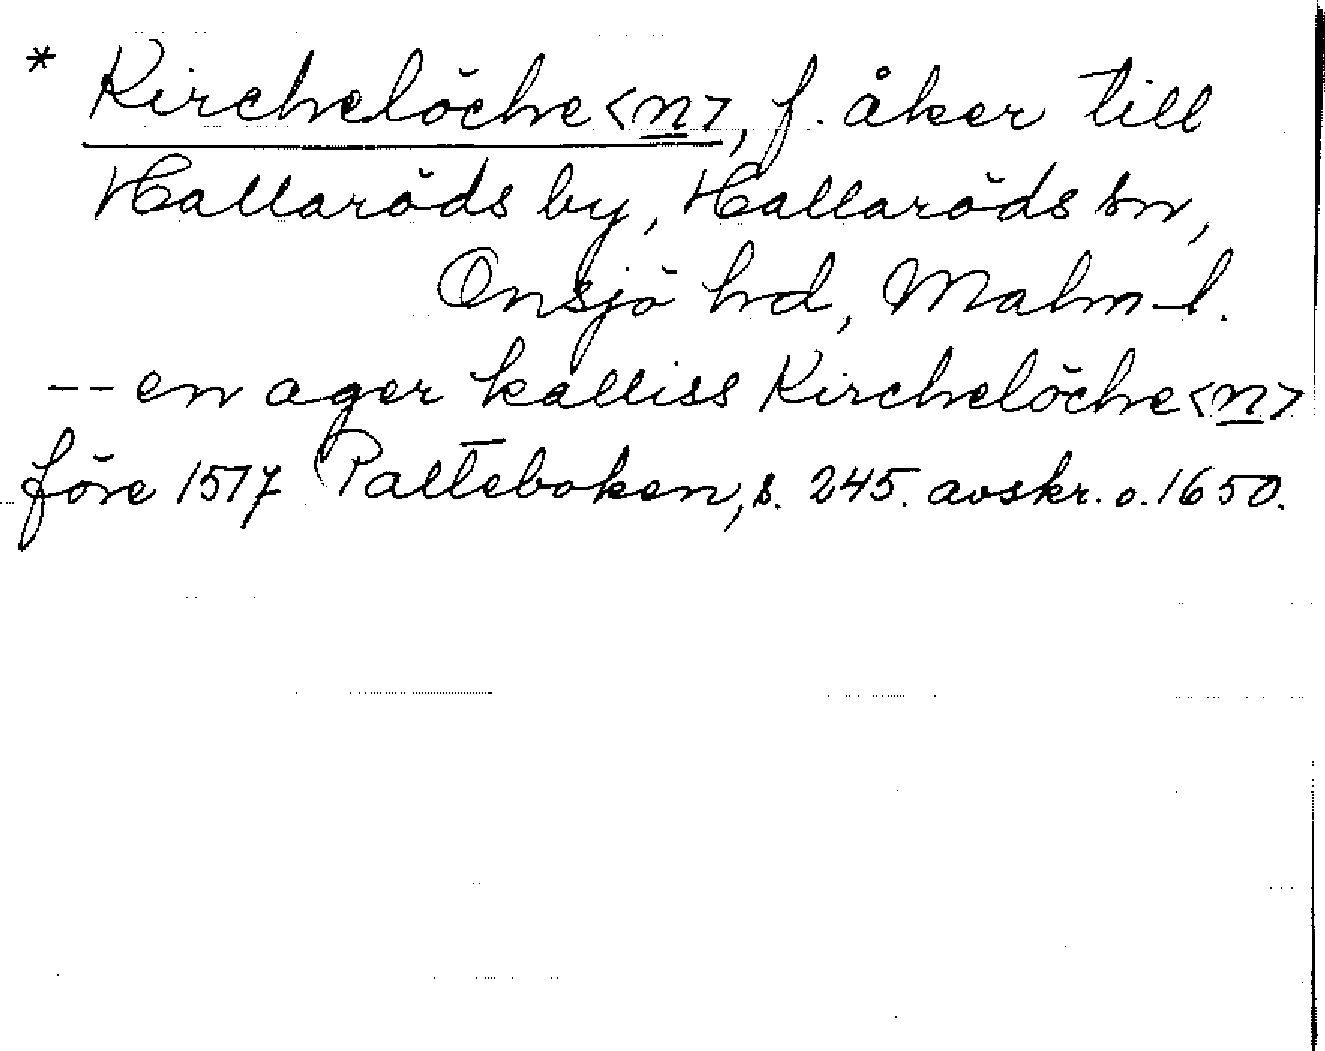 * Kirchelöche<n>, f. åker till
Hallaröds by, Hallaröds sn,
Onsjö hd, Malm-l.
-- en ager kalliss Kirchelöche<n>
före 1517 Palteboken, s. 245. avskr. o. 1650.